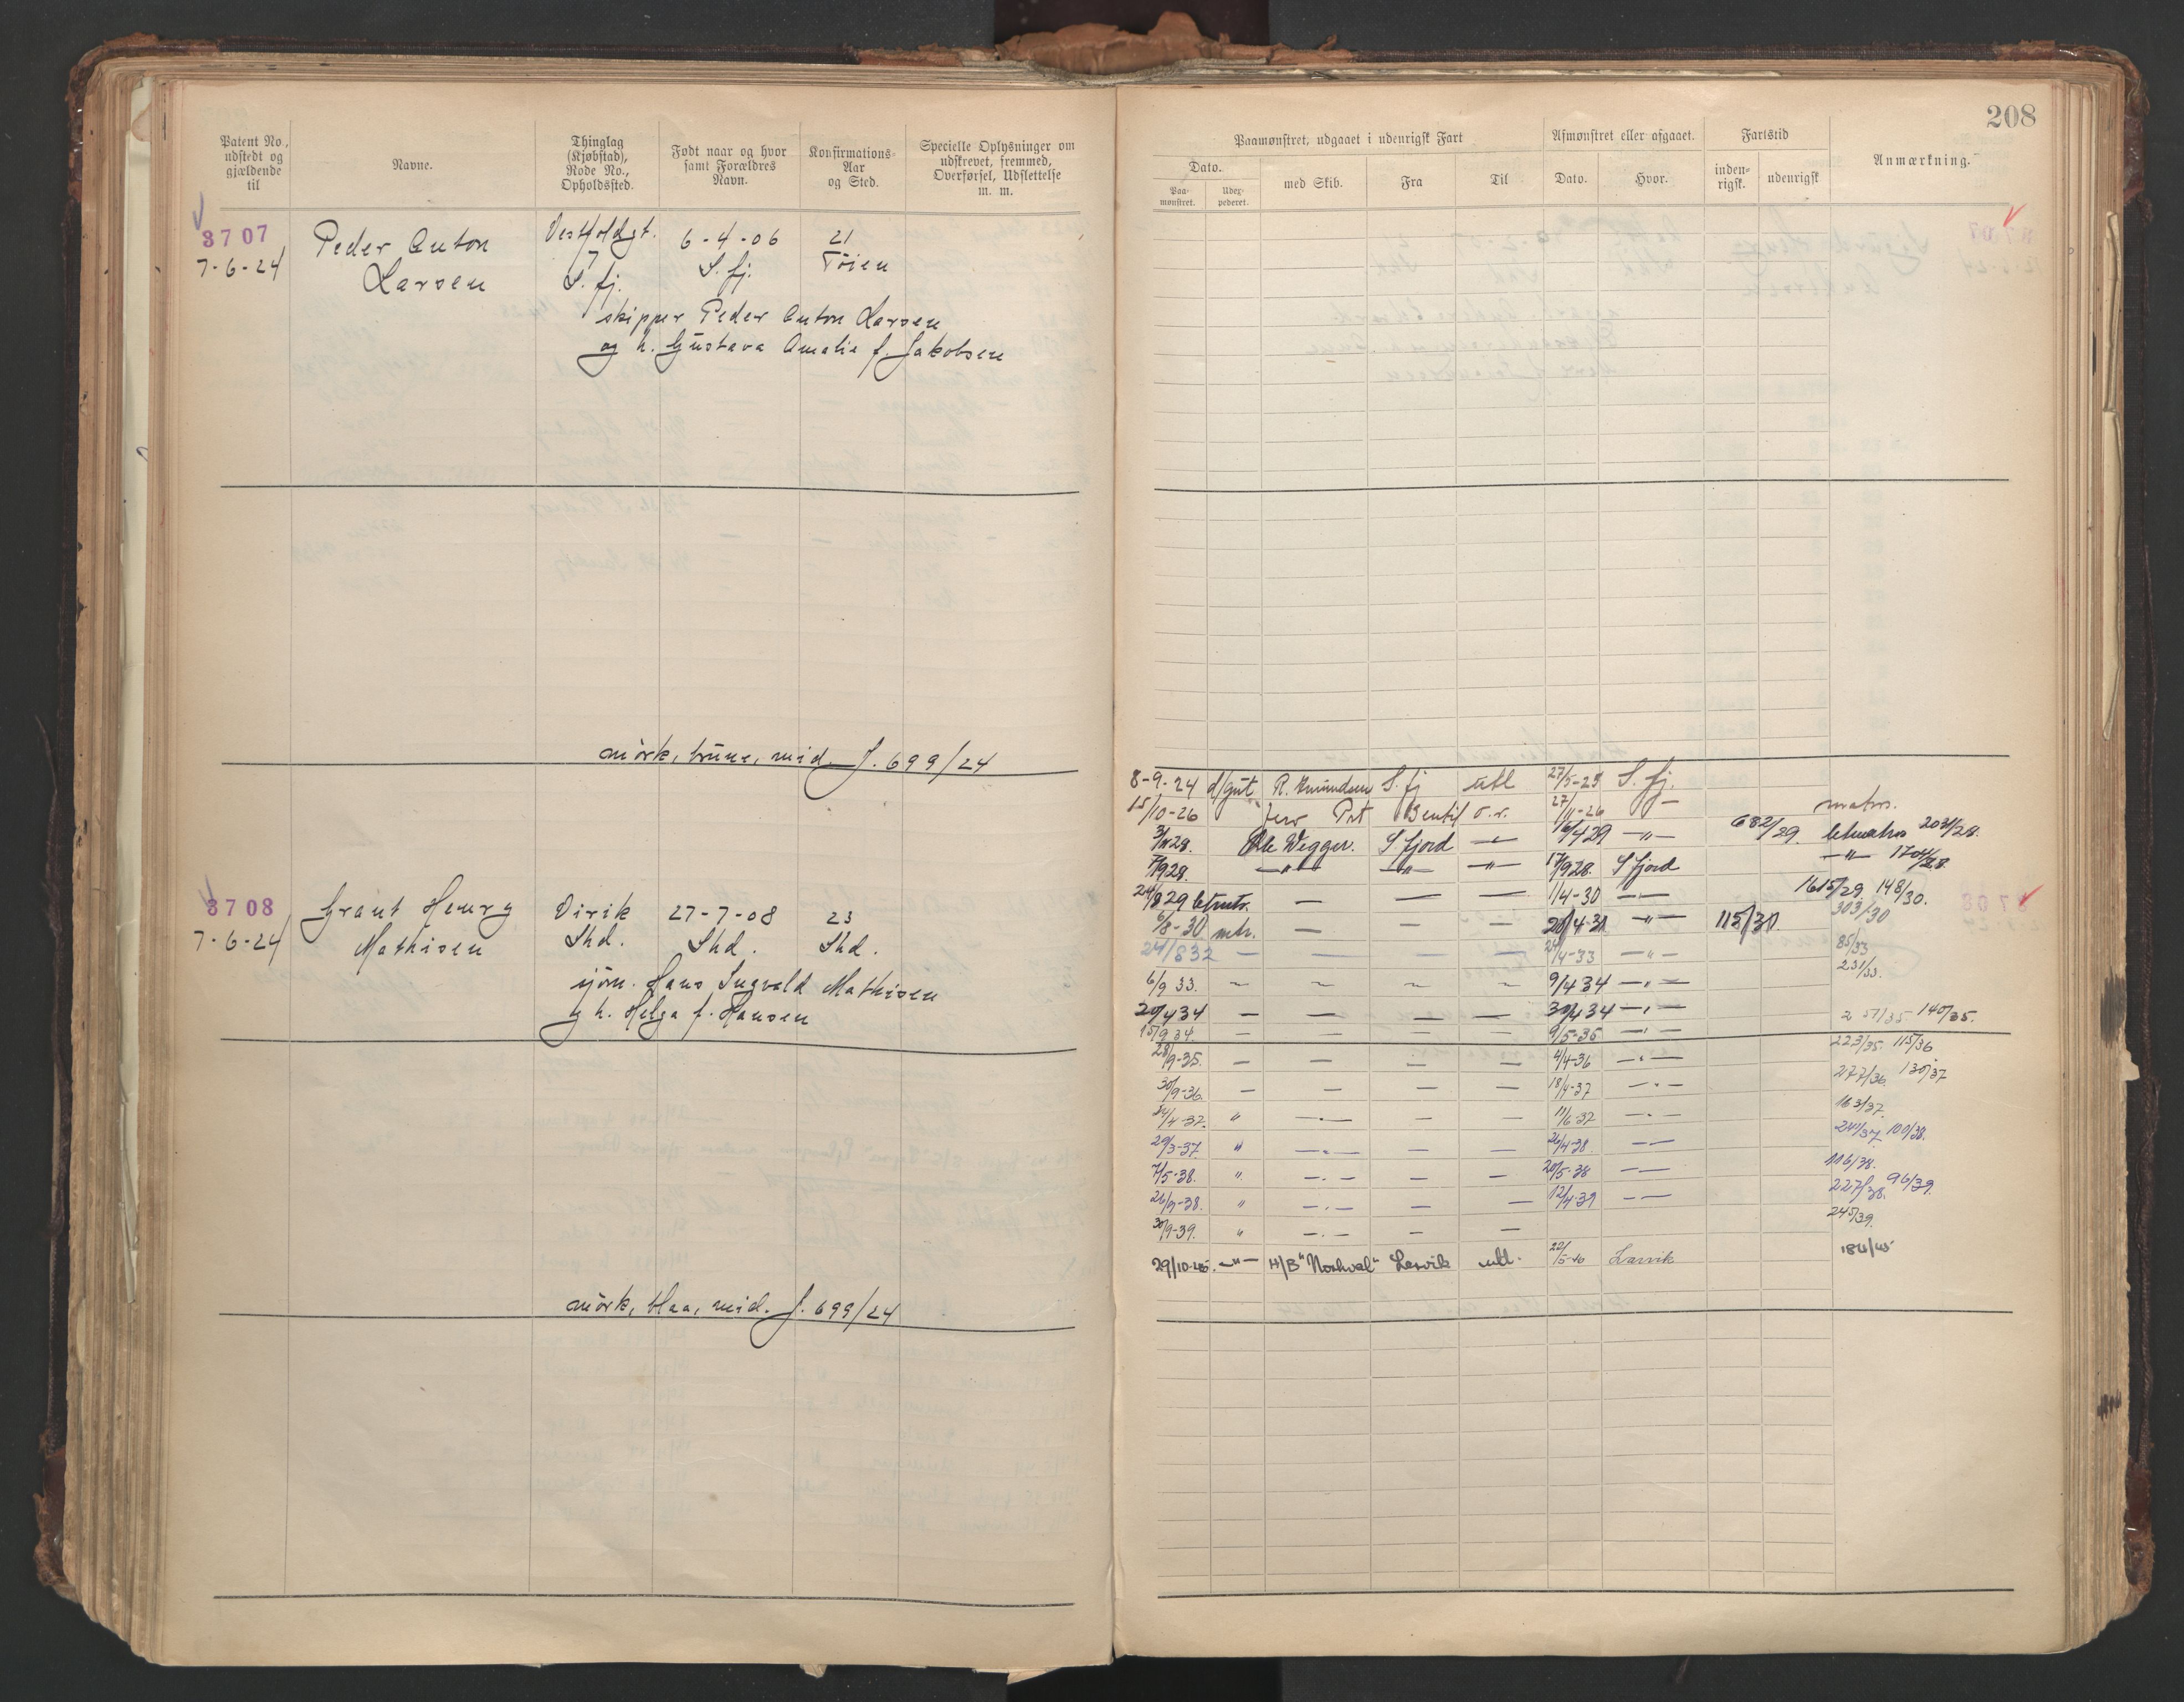 208
Patent No., udstedt og gjældende til
Navne.
Thinglag (Kjøbstad), Rode No., Opholdssted.
Født naar og hvor samt Forældres Navn.
Konfirmations-Aar og Sted.
Specielle Oplysninger om udskrevet, fremmed, Overførsel, Udslettelse m. m.
Paamønstret, udgaaet i udenrigsk Fart
Dato.
Paa-mønstret.
Udex-pederet.
med Skib.
Fra
Til
Afmønstret eller afgaaet.
Dato.
Hvor.
Fartstid
inden-rigsk.
udenrigsk
Anmærkning.
3707 Peder Anton Vestfoldgt. 6-4-06 21
7-6-24 Larsen S. fj. S. fj. Töien
skipper Peder Anton Larsen
og h. Gustava Amalie f. Jakobsen
mörk, brune, mid. J. 699/24
8-9-24 d/gut R. Amundsen S. fj utl 27/5-25 S. fj.
15/10-26 Bentil o.v. 27/11-26 — matros.
3/11 28. Ole Wegger. S. fjord —"— 16/4 29 —"— 682/29. letmatros 2031/28.
7/9 28. —"— —"— —"— 17/9 28. S fjord —"— 1704/28.
24/8 29 letmtr. — — — 1/4-30 —"— 1615/29 148/30.
6/8-30 mtr. — — — 20/4-31 —"— 115/30. 303/30
24/8 32 — — — — 24/4-33 —"— 85/33
6/9 33. ~ ~ ~ ~ 9/4 34 —"— 231/33.
20/4 34 — — — — 30/4 34 —"—
15/9 34. — — — — 9/5-35 —"— 251/35 140/35.
28/9-35. — — — — 4/4-36 —"— 223/35. 115/36
30/9-36. — — — — 18/4-37 —"— 277/36. 130/37
24/4-37. " —"— — — 11/6-37 —"— 163/37.
29/3-37. " —"— — — 26/4-38 —"— 241/37 100/38.
7/5-38. " —"— — — 20/5-38 —"— 116/38.
26/9-38. " —"— — — 12/4-39 —"— 227/38. 96/39.
30/9-39. " —"— — — 245/39.
29/10-45. —"— H/B "Norhval" Larvik utl. 22/5-46 Larvik 184/45
3708 Grant Henry Virik 27-7-08 23
7-6-24 Mathisen Shd. Shd. Shd.
sjöm. Hans Ingvald Mathisen
og h. Helga f. Hansen
mörk, blaa, mid. J. 699/24